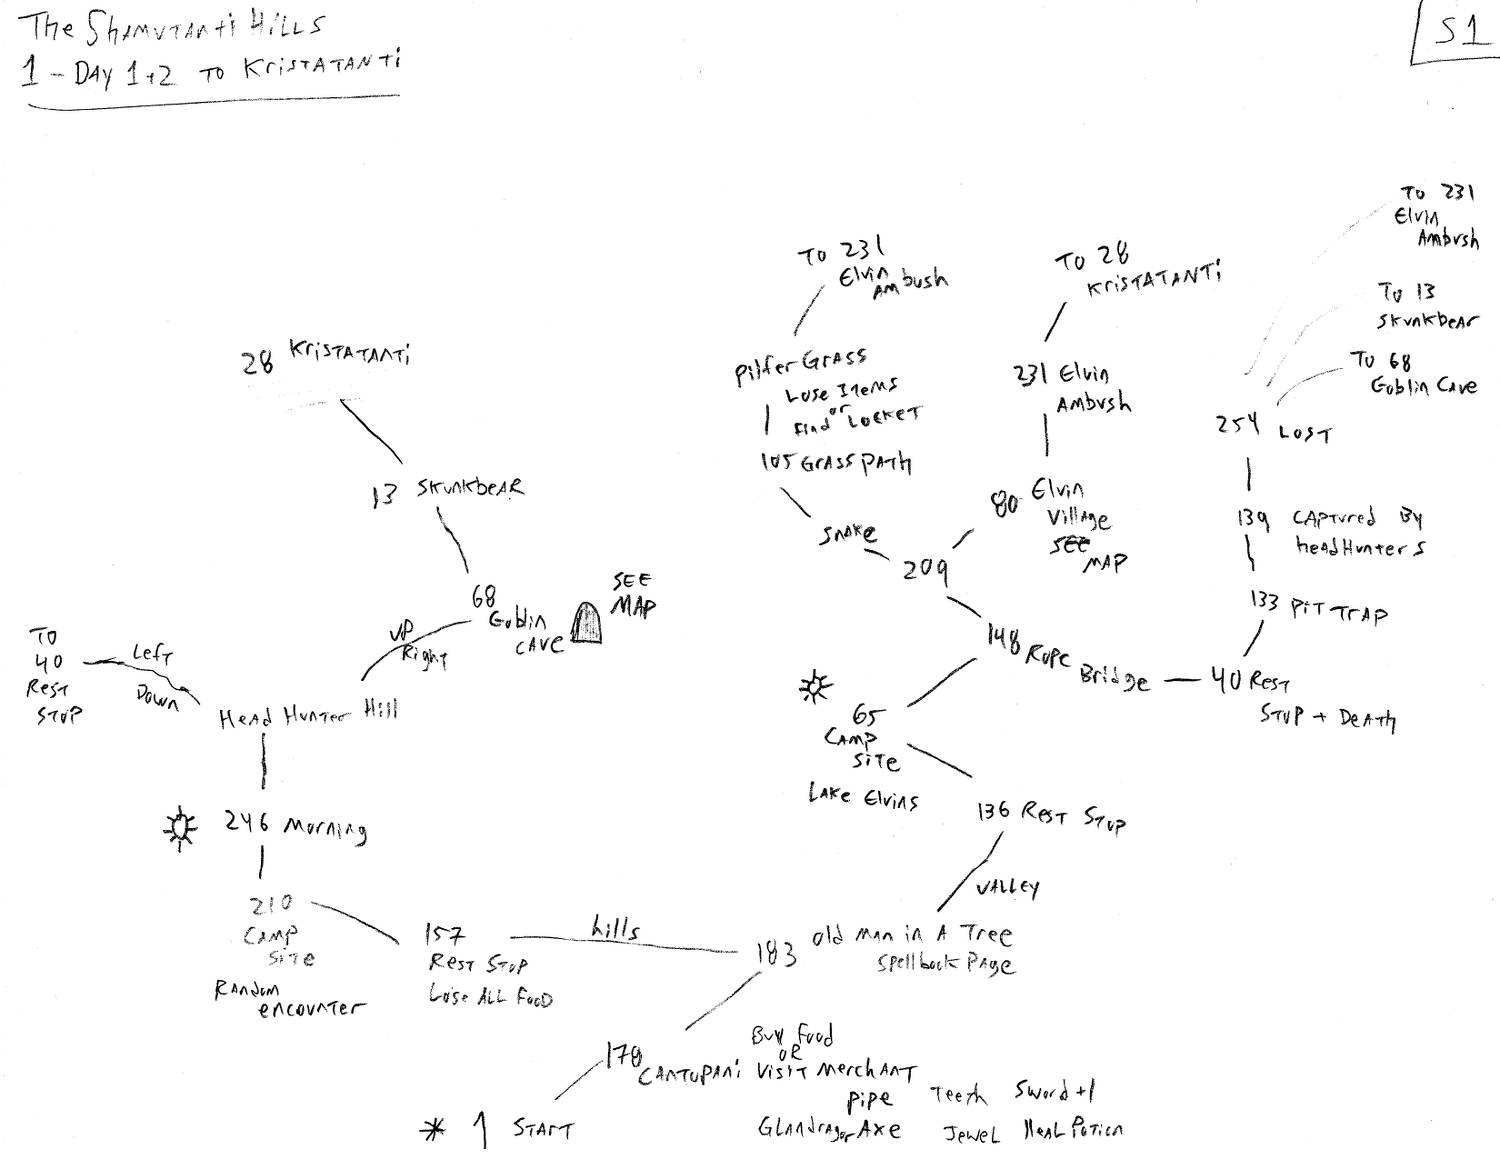 The Shamutanti Hills
1 - DAY 1+2 TO KrisTATANTi
S1
TO 231
Elvin
Ambush
TO 231
Elvin
AMbush
TO 28
KrisTATANTi
To 13
SkunkbeAr
To 68
Goblin CAve
28 KrisTATANTi
PilferGrAss
Lose ITems
or
Find LOCKET
231 Elvin
AMbush
254 LOST
105 GrASS PATH
13 SkunkbeAR
80 Elvin
VillAge
SEE
MAP
139 CAPTured By
headHunterS
SnAKe
209
133 PiT TrAP
68
Goblin
CAve
SEE
MAP
UP
Right
TO
40
ResT
STOP
LefT
Down
HeAd HunTer Hill
148 Rope Bridge
40 ResT
STOP + DeATh
65
CAMP
SiTe
LAKe Elvins
136 ResT STOP
VALLEY
246 Morning
210
CAMP
SiTe
RAndom
encounTer
157
ResT STOP
Lose ALL FooD
hills
183 old MAn in A Tree
SpellbooK PAge
170 CANTOPANi
Buy Food
OR
VisiT MerchANT
PiPe Teeth Sword+1
Glandragor Axe JeweL HeAL PoTion
* 1 START